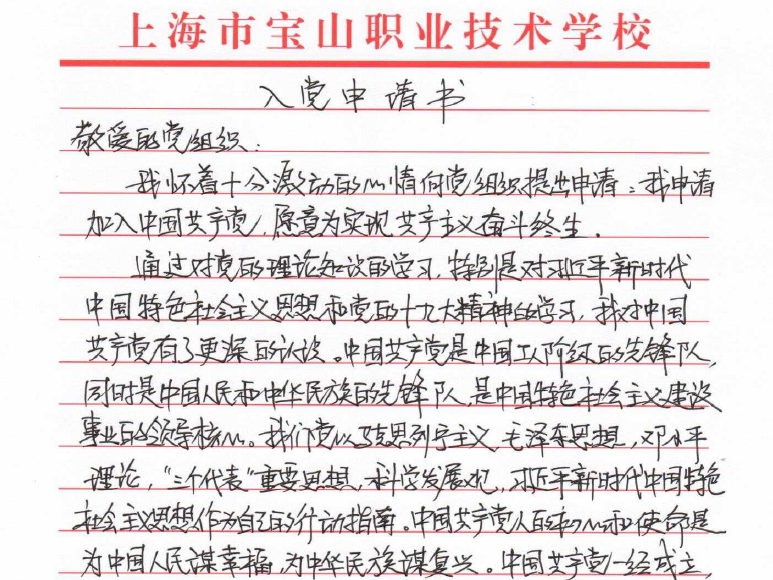 上海市宝山职业技术学校
入党申请书
敬爱的党组织：
我怀着十分激动的心情向党组织提出申请：我申请
加入中国共产党，愿意为实现共产主义奋斗终生．
通过对党的理论知识的学习，特别是对习近平新时代
中国特色社会主义思想和党的十九大精神的学习，我对中国
共产党有了更深的认识。中国共产党是中国工人阶级的先锋队，
同时是中国人民和中华民族的先锋队，是中国特色社会主义建设
事业的领导核心。我们党以马克思列宁主义，毛泽东思想，邓小平
理论，“三个代表”重要思想，科学发展观，习近平新时代中国特色
社会主义思想作为自己的行动指南。中国共产党人的初心和使命是
为中国人民谋幸福，为中华民族谋复兴。中国共产党一经成立，